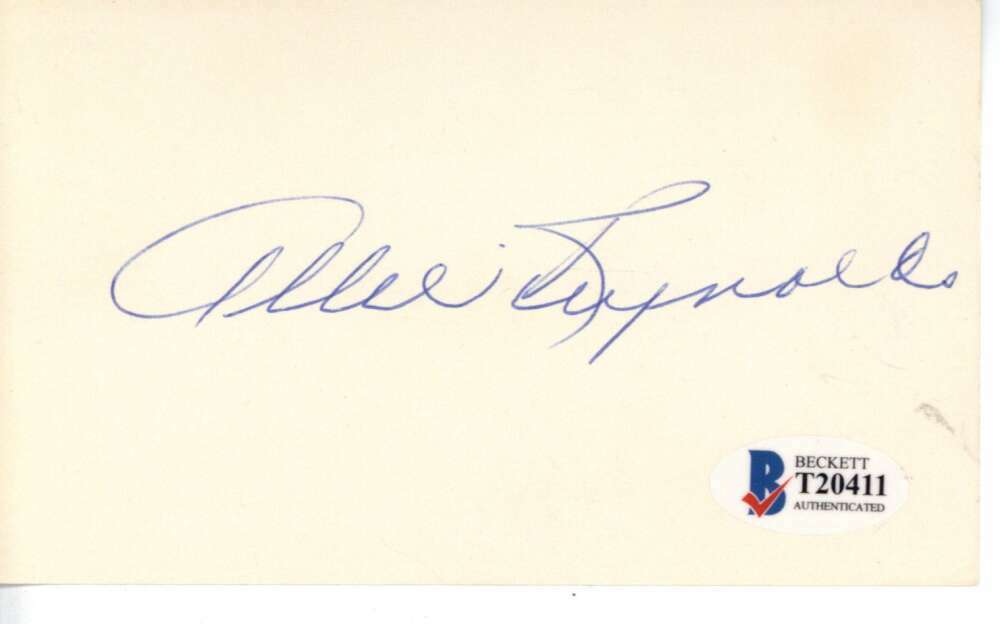 Allie Reynolds
BECKETT
T20411
AUTHENTICATED